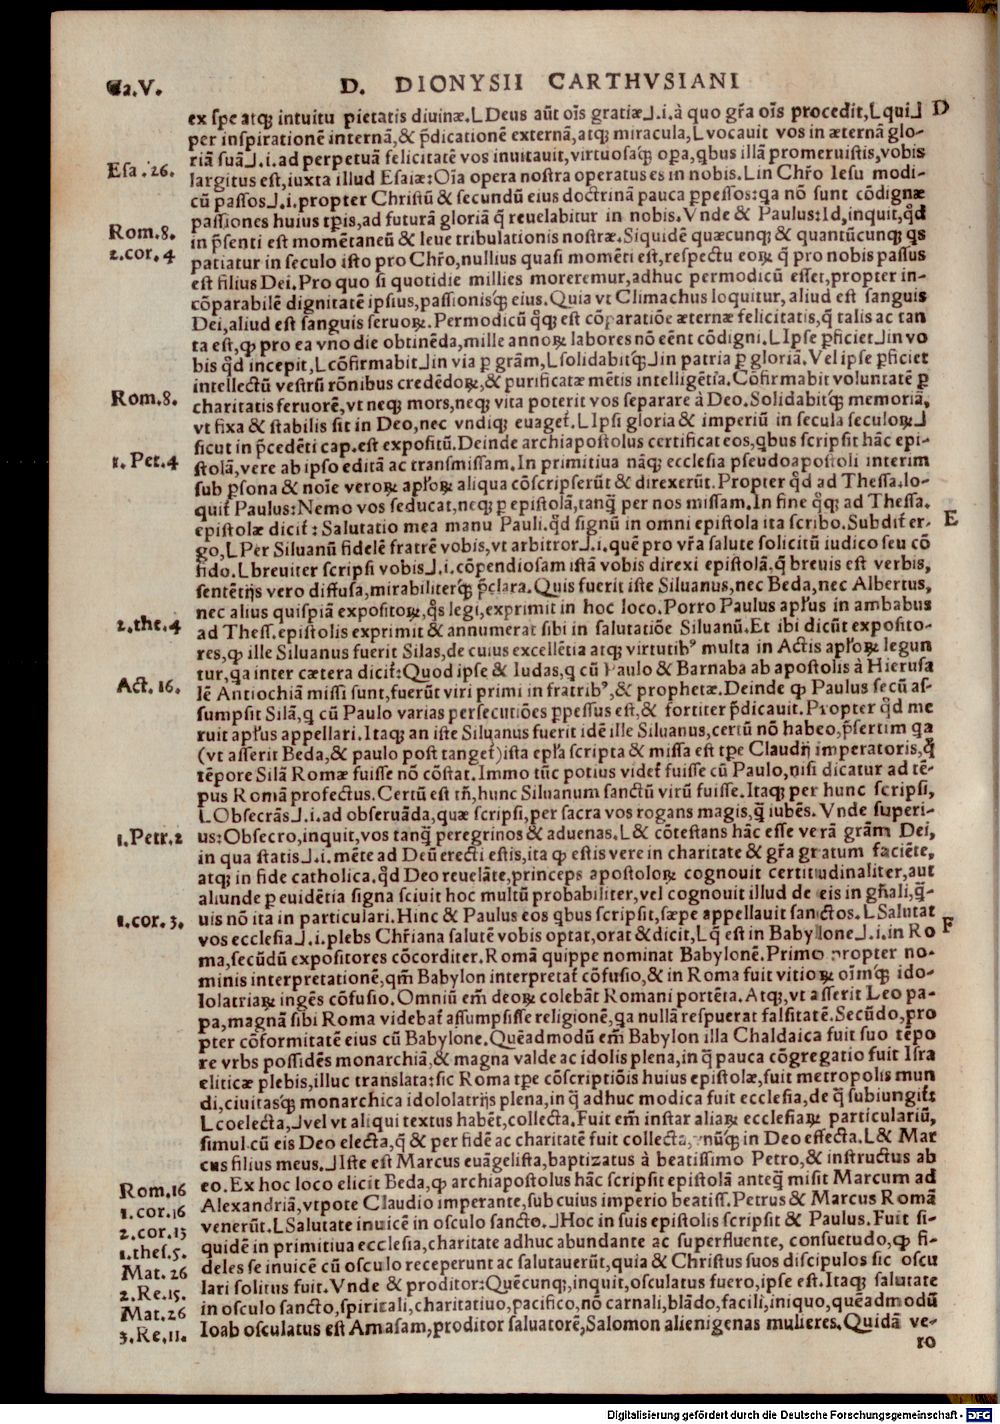 Ca.V. D. DIONYSII CARTHVSIANI
ex spe atq; intuitu pietatis diuinæ. L Deus aūt oīs gratiæ ⅃ .i. à quo gr̃a oīs procedit, L qui ⅃ D
per inspirationē internā, & p̄dicationē externā, atq; miracula, L vocauit vos in æternā glo-
riā suā ⅃ .i. ad perpetuā felicitatē vos inuitauit, virtuosaq́; opa, qbus illā promeruistis, vobis
Esa .26. largitus est, iuxta illud Esaiæ: Oĩa opera nostra operatus es in nobis. L in Chr̃o Iesu modi-
cū passos ⅃ .i. propter Christū & secundū eius doctrinā pauca ꝑpessos: qa nō sunt cōdignæ
passiones huius tp̄is, ad futurā gloriā q̄ reuelabitur in nobis. Vnde & Paulus: Id, inquit, qd̄
Rom.8. in p̄senti est momētaneū & leue tribulationis nostræ. Siquidē quæcunq; & quantūcunq; qs
2.cor. 4 patiatur in seculo isto pro Chr̃o, nullius quasi momēti est, respectu eoꝝ q̄ pro nobis passus
est filius Dei. Pro quo si quotidie millies moreremur, adhuc permodicū esset, propter in-
cōparabilē dignitatē ipsius, passionisq́; eius. Quia vt Climachus loquitur, aliud est sanguis
Dei, aliud est sanguis seruoꝝ. Permodicū q̄q; est cōparatiōe æternæ felicitatis, q̄ talis ac tan
ta est, ꝙ pro ea vno die obtinēda, mille annoꝝ labores nō eēnt cōdigni. L Ipse ꝑficiet ⅃ in vo
bis qd̄ incepit, L cōfirmabit ⅃ in via ꝑ grām, L solidabitq́; ⅃ in patria ꝑ gloriā. Vel ipse ꝑficiet
intellectū vestrū rōnibus credēdoꝝ, & purificatæ mētis intelligētia. Cōfirmabit voluntatē ꝑ
Rom.8. charitatis feruorē, vt neq; mors, neq; vita poterit vos separare à Deo. Solidabitq́; memoriā,
vt fixa & stabilis sit in Deo, nec vndiq; euaget̃. L Ipsi gloria & imperiū in secula seculoꝝ ⅃
sicut in p̄cedēti cap. est expositū. Deinde archiapostolus certificat eos, qbus scripsit hāc epi-
1. Pet.4 stolā, vere ab ipso editā ac transmissam. In primitiua nāq; ecclesia pseudoapostoli interim
sub ꝑsona & noīe veroꝝ apl̃oꝝ aliqua cōscripserūt & direxerūt. Propter qd̄ ad Thessa. lo-
quit̃ Paulus: Nemo vos seducat, neq; ꝑ epistolā, tanq̄ per nos missam. In fine q̄q; ad Thessa.
epistolæ dicit̃: Salutatio mea manu Pauli. qd̄ signū in omni epistola ita scribo. Subdit̃ er- E
go, L Per Siluanū fidelē fratrē vobis, vt arbitror ⅃ .i. quē pro vr̃a salute solicitū iudico seu cō
fido. L breuiter scripsi vobis ⅃ .i. cōpendiosam istā vobis direxi epistolā, q̄ breuis est verbis,
sentētijs vero diffusa, mirabiliterq́; p̄clara. Quis fuerit iste Siluanus, nec Beda, nec Albertus,
nec alius quispiā expositoꝝ, q̄s legi, exprimit in hoc loco. Porro Paulus apl̃us in ambabus
2.the.4 ad Thess. epistolis exprimit & annumerat sibi in salutatiōe Siluanū. Et ibi dicūt exposito-
res, ꝙ ille Siluanus fuerit Silas, de cuius excellētia atq; virtutib⁹ multa in Actis apl̃oꝝ legun
tur, qa inter cætera dicit̃: Quod ipse & Iudas, q cū Paulo & Barnaba ab apostolis à Hierusa
Act. 16. lē Antiochiā missi sunt, fuerūt viri primi in fratrib⁹, & prophetæ. Deinde ꝙ Paulus secū as-
sumpsit Silā, q cū Paulo varias persecutiōes ꝑpessus est, & fortiter p̄dicauit. Propter qd̄ me
ruit apl̃us appellari. Itaq; an iste Siluanus fuerit idē ille Siluanus, certū nō habeo, p̄sertim qa
(vt asserit Beda, & paulo post tanget̃) ista epl̃a scripta & missa est tp̄e Claudij imperatoris, q̄
tēpore Silā Romæ fuisse nō cōstat. Immo tūc potius videt̃ fuisse cū Paulo, nisi dicatur ad tē-
pus Romā profectus. Certū est tn̄, hunc Siluanum sanctū virū fuisse. Itaq; per hunc scripsi,
L Obsecrās ⅃ .i. ad obseruāda, quæ scripsi, per sacra vos rogans magis, q̄ iubēs. Vnde superi-
1.Petr.2 us: Obsecro, inquit, vos tanq̄ peregrinos & aduenas. L & cōtestans hāc esse verā grām Dei,
in qua statis ⅃ .i. mēte ad Deū erecti estis, ita ꝙ estis vere in charitate & gr̃a gratum faciēte,
atq; in fide catholica. qd̄ Deo reuelāte, princeps apostoloꝝ cognouit certitudinaliter, aut
aliunde ꝑ euidētia signa sciuit hoc multū probabiliter, vel cognouit illud de eis in gñali, q̄-
1.cor. 3. uis nō ita in particulari. Hinc & Paulus eos qbus scripsit, sæpe appellauit sanctos. L Salutat F
vos ecclesia ⅃ .i. plebs Chr̃iana salutē vobis optat, orat & dicit, L q̄ est in Babylone ⅃ .i. in Ro
ma, secūdū expositores cōcorditer. Romā quippe nominat Babylonē. Primo propter no-
minis interpretationē, qm̄ Babylon interpretat̃ cōfusio, & in Roma fuit vitioꝝ oīmq́; ido-
lolatriaꝝ ingēs cōfusio. Omniū em̄ deoꝝ colebāt Romani portēta. Atq; vt asserit Leo pa-
pa, magnā sibi Roma videbat̃ assumpsisse religionē, qa nullā respuerat falsitatē. Secūdo, pro
pter cōformitatē eius cū Babylone. Quēadmodū em̄ Babylon illa Chaldaica fuit suo tēpo
re vrbs possidēs monarchiā, & magna valde ac idolis plena, in q̄ pauca cōgregatio fuit Isra
eliticæ plebis, illuc translata: sic Roma tp̄e cōscriptiōis huius epistolæ, fuit metropolis mun
di, ciuitasq́; monarchica idololatrijs plena, in q̄ adhuc modica fuit ecclesia, de q̄ subiungit̃:
L coelecta, ⅃ vel vt aliqui textus habēt, collecta. Fuit em̄ instar aliaꝝ ecclesiaꝝ particulariū,
simul cū eis Deo electa, q̄ & per fidē ac charitatē fuit collecta, vnūq́; in Deo effecta. L & Mar
cus filius meus. ⅃ Iste est Marcus euāgelista, baptizatus à beatissimo Petro, & instructus ab
Rom.16 eo. Ex hoc loco elicit Beda, ꝙ archiapostolus hāc scripsit epistolā anteq̄ misit Marcum ad
1.cor.16 Alexandriā, vtpote Claudio imperante, sub cuius imperio beatiss. Petrus & Marcus Romā
2.cor.13 venerūt. L Salutate inuicē in osculo sancto. ⅃ Hoc in suis epistolis scripsit & Paulus. Fuit si-
1.thes.5. quidē in primitiua ecclesia, charitate adhuc abundante ac superfluente, consuetudo, ꝙ fi-
Mat. 26 deles se inuicē cū osculo receperunt ac salutauerūt, quia & Christus suos discipulos sic oscu
2.Re.15. lari solitus fuit. Vnde & proditor: Quēcunq;, inquit, osculatus fuero, ipse est. Itaq; salutate
Mat.26 in osculo sancto, spiritali, charitatiuo, pacifico, nō carnali, blādo, facili, iniquo, quēadmodū
3.Re.11. Ioab osculatus est Amasam, proditor saluatorē, Salomon alienigenas mulieres. Quidā ve-
ro
Digitalisierung gefördert durch die Deutsche Forschungsgemeinschaft - DFG